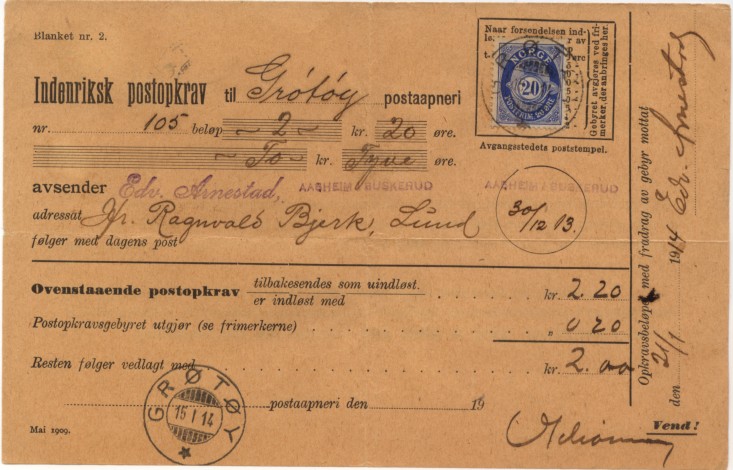 Blanket nr. 2.
Indenriksk postopkrav til Grötöy postaapneri
nr. 105 beløp – 2 – kr. 20 øre.
– To – kr. Tyve øre.
avsender Edv. Arnestad, AASHEIM / BUSKERUD AASHEIM / BUSKERUD
adressat Hr. Ragnvald Bjerk, Lund
følger med dagens post
30/12 13.
Naar forsendelsen ind-
Gebyret avgjøres ved fri-
merker, der anbringes her.
NORGE
20
POSTFRIM. 20 ØRE
Avgangsstedets poststempel.
Ovenstaaende postopkrav tilbakesendes som uindløst.
er indløst med kr. 2 20
Postopkravsgebyret utgjør (se frimerkerne) „ 0 20
Resten følger vedlagt med kr. 2.00
postaapneri den 19
GRØTØY
15 I 14
Mai 1909.
Vend!
Opkravsbeløpet med fradrag av gebyr mottat
den 21/1 1914 Edv. Arnestad